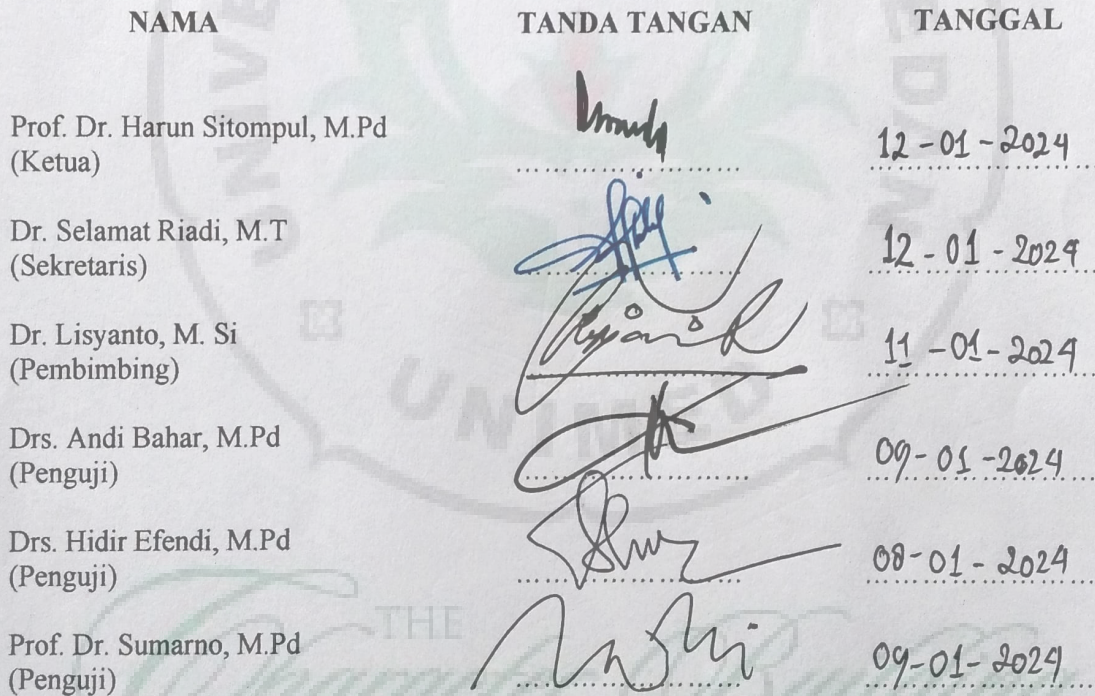 NAMA TANDA TANGAN TANGGAL
Prof. Dr. Harun Sitompul, M.Pd
(Ketua) 12-01-2024
Dr. Selamat Riadi, M.T
(Sekretaris) 12-01-2024
Dr. Lisyanto, M. Si
(Pembimbing) 11-01-2024
Drs. Andi Bahar, M.Pd
(Penguji) 09-01-2024
Drs. Hidir Efendi, M.Pd
(Penguji) 08-01-2024
Prof. Dr. Sumarno, M.Pd
(Penguji) 09-01-2024
UNIMED
THE